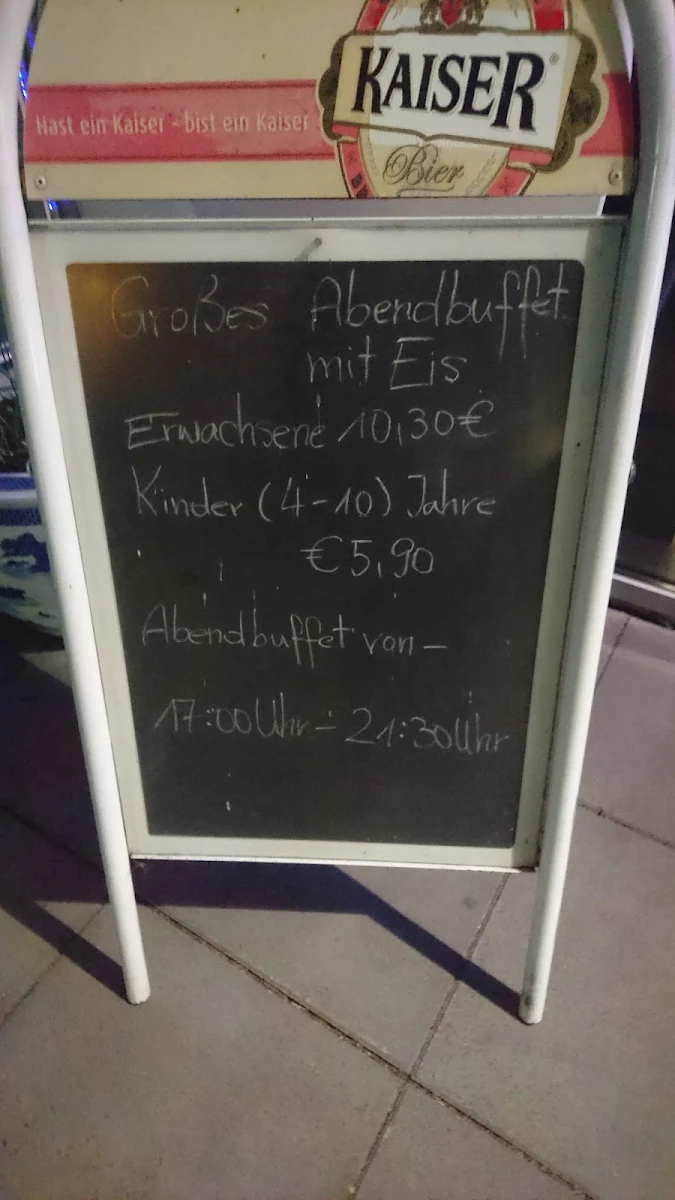 KAISER®
Hast ein Kaiser - bist ein Kaiser
Bier
Großes Abendbuffet
mit Eis
Erwachsene 10,30€
Kinder (4-10) Jahre
€5,90
Abendbuffet von -
17:00 Uhr - 21:30 Uhr